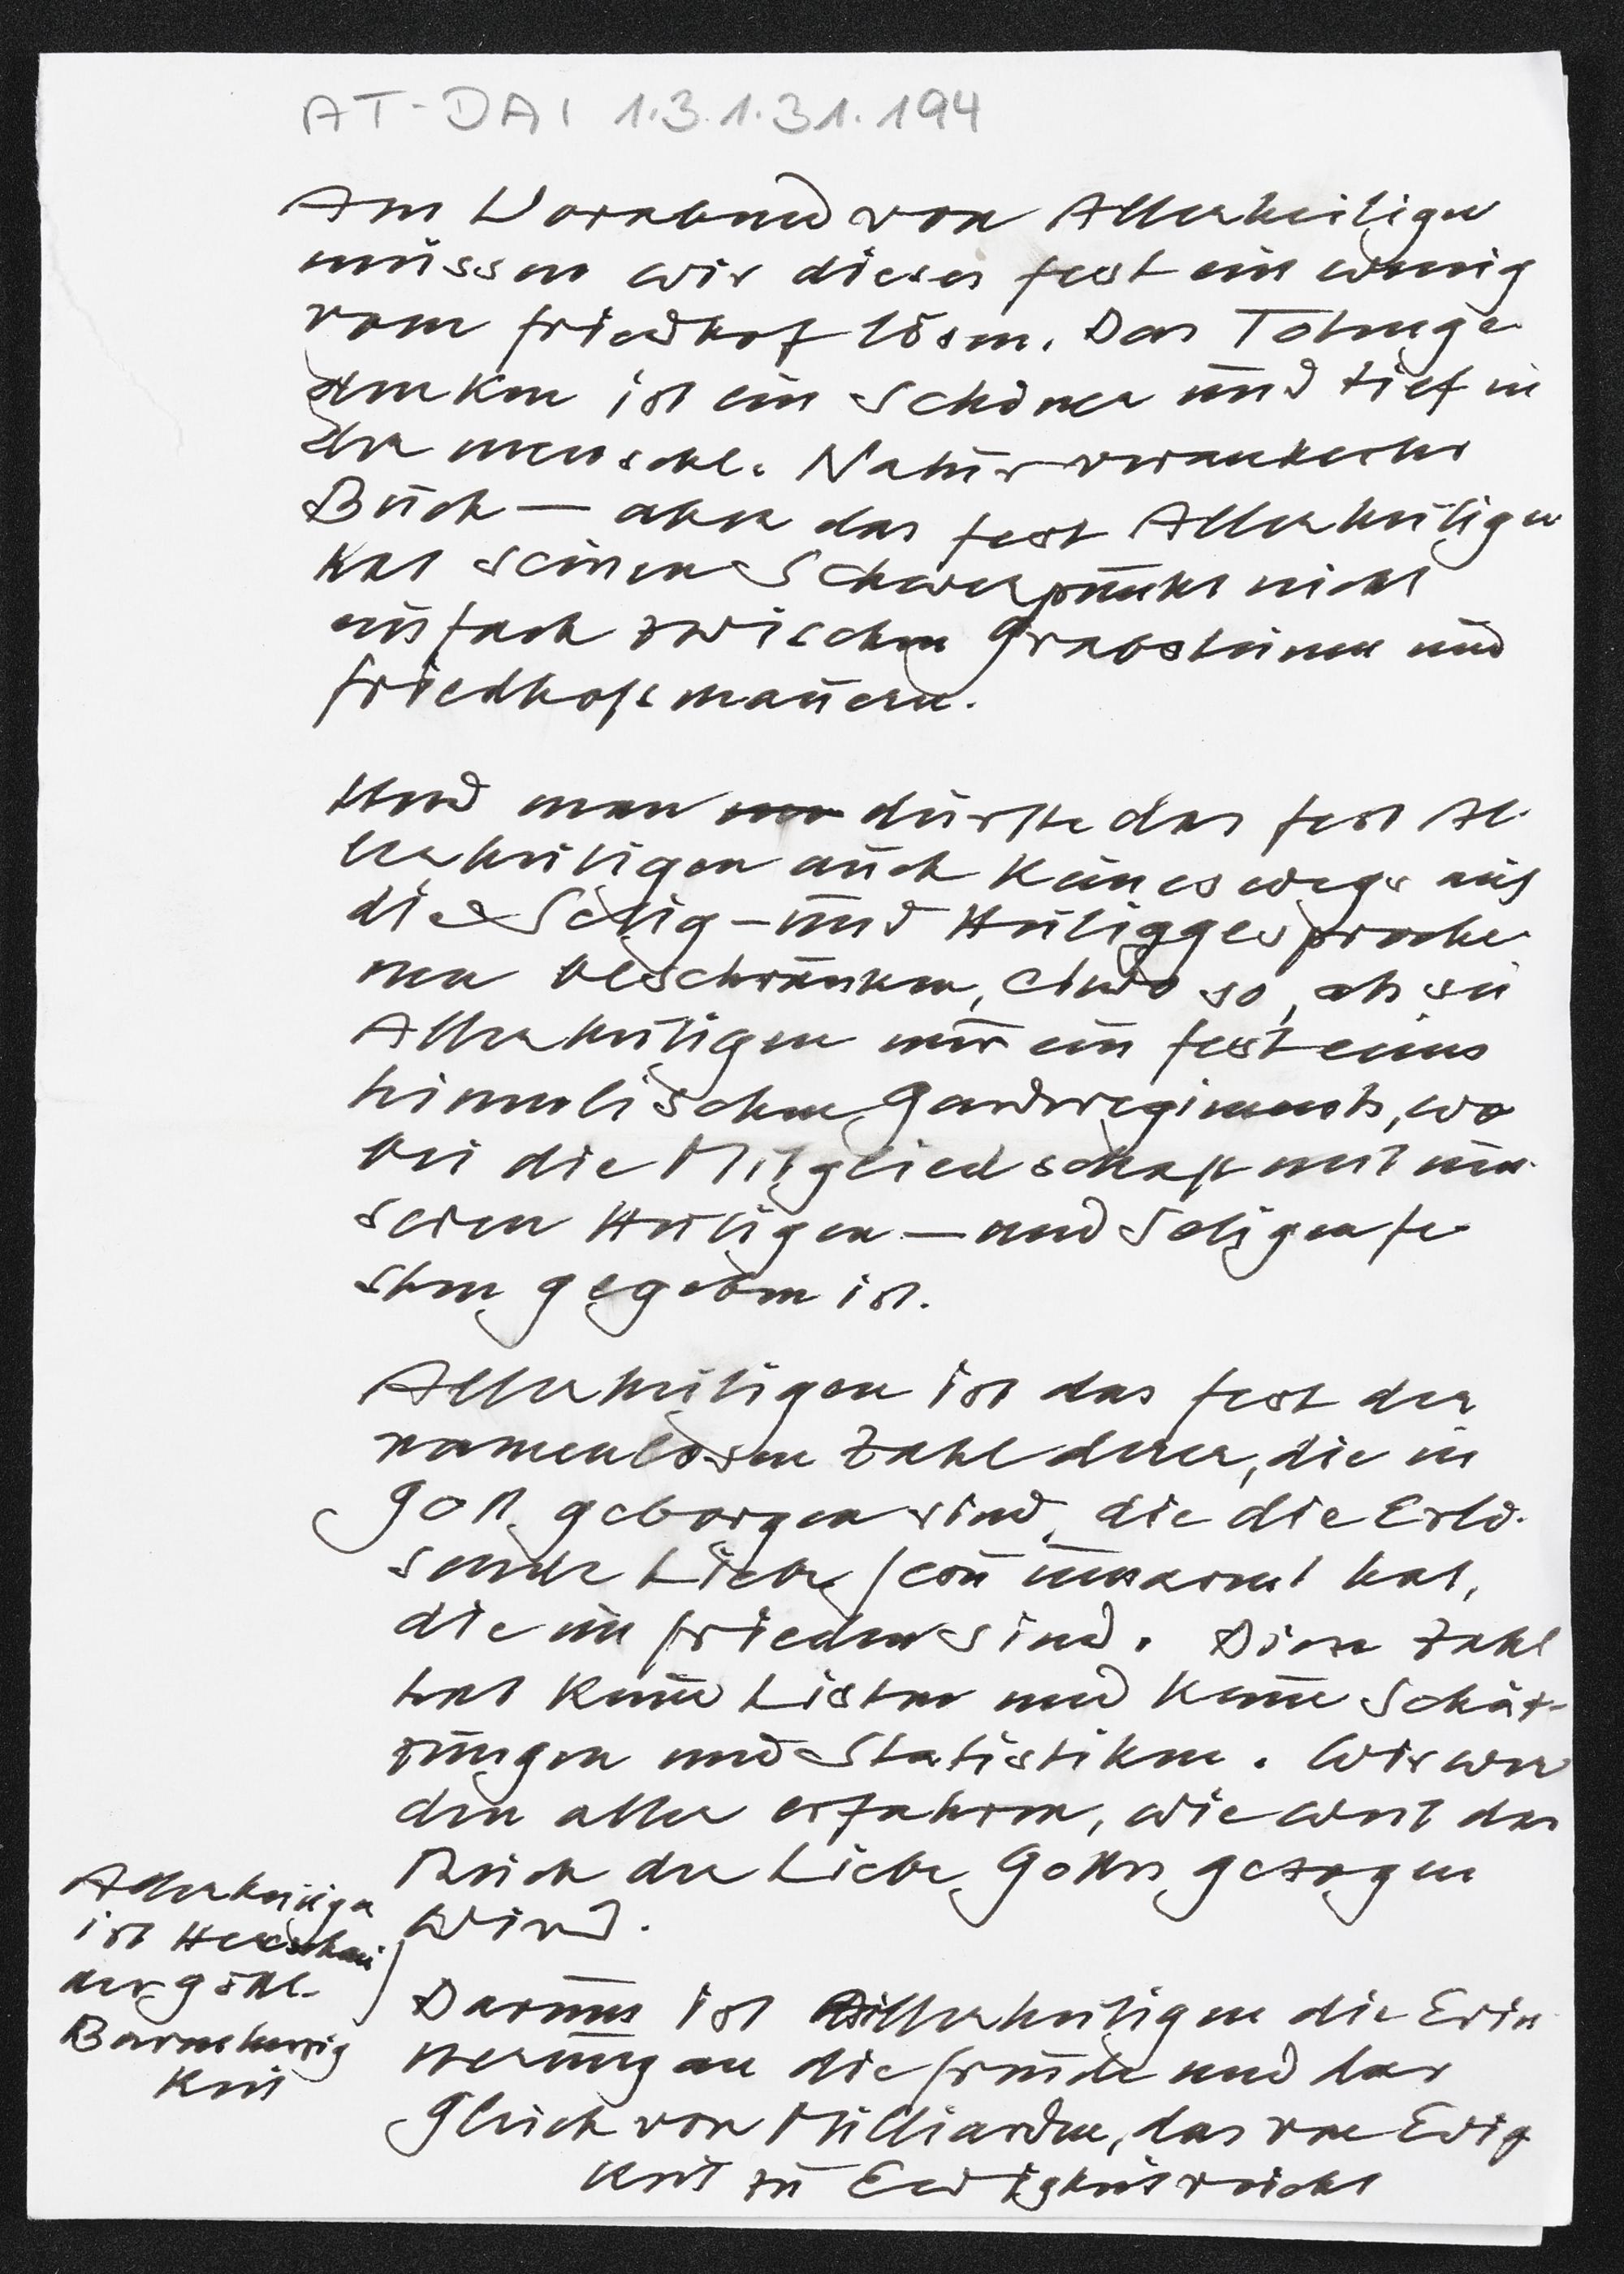 AT-DAI 1.3.1.31.194
Am Vorabend von Allerheiligen
müssen wir dieses Fest ein wenig
vom Friedhof lösen. Das Totenge-
denken ist ein schöner und tief in
der menschl. Natur verankerter
Brauch — aber das Fest Allerheiligen
hat seinen Schwerpunkt nicht
einfach zwischen Grabsteinen und
Friedhofsmauern.
Und man dürfte das Fest Al-
lerheiligen auch keineswegs auf
die Selig- und Heiliggesproche-
nen beschränken, etwa so, als sei
Allerheiligen nur ein Fest eines
himmlischen Garderegiments, wo-
bei die Mitgliedschaft mit un-
seren Heiligen- und Seligenfe-
sten gegeben ist.
Allerheiligen ist das Fest der
namenlosen Zahl derer, die in
Gott geborgen sind, die die Erlö-
sende Liebe umarmt hat,
die im Frieden sind. Diese Zahl
hat keine Listen und keine Schät-
zungen und Statistiken. Wir wer-
den alle erfahren, wie weit das
Reich der Liebe Gottes gezogen
wird.
Allerheiligen
ist Heerschau
der göttl.
Barmherzig
keit
Darum ist Allerheiligen die Erin-
nerung an die Freude und das
Glück von Milliarden, das von Ewig
keit zu Ewigkeit reicht